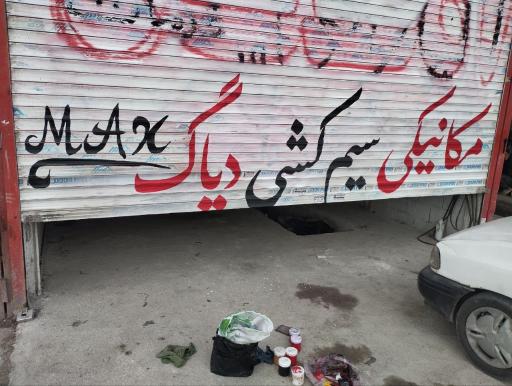 مکانیکی سیم کشی دیاگ MAX